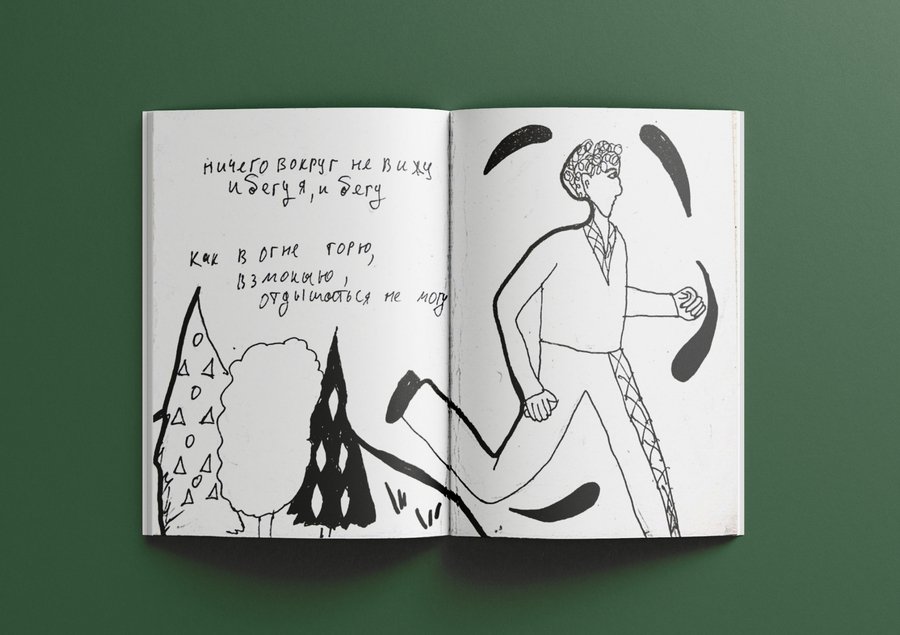 ничего вокруг не вижу
и бегу я, и бегу
как в огне горю,
взмокшю,
отдышаться не могу